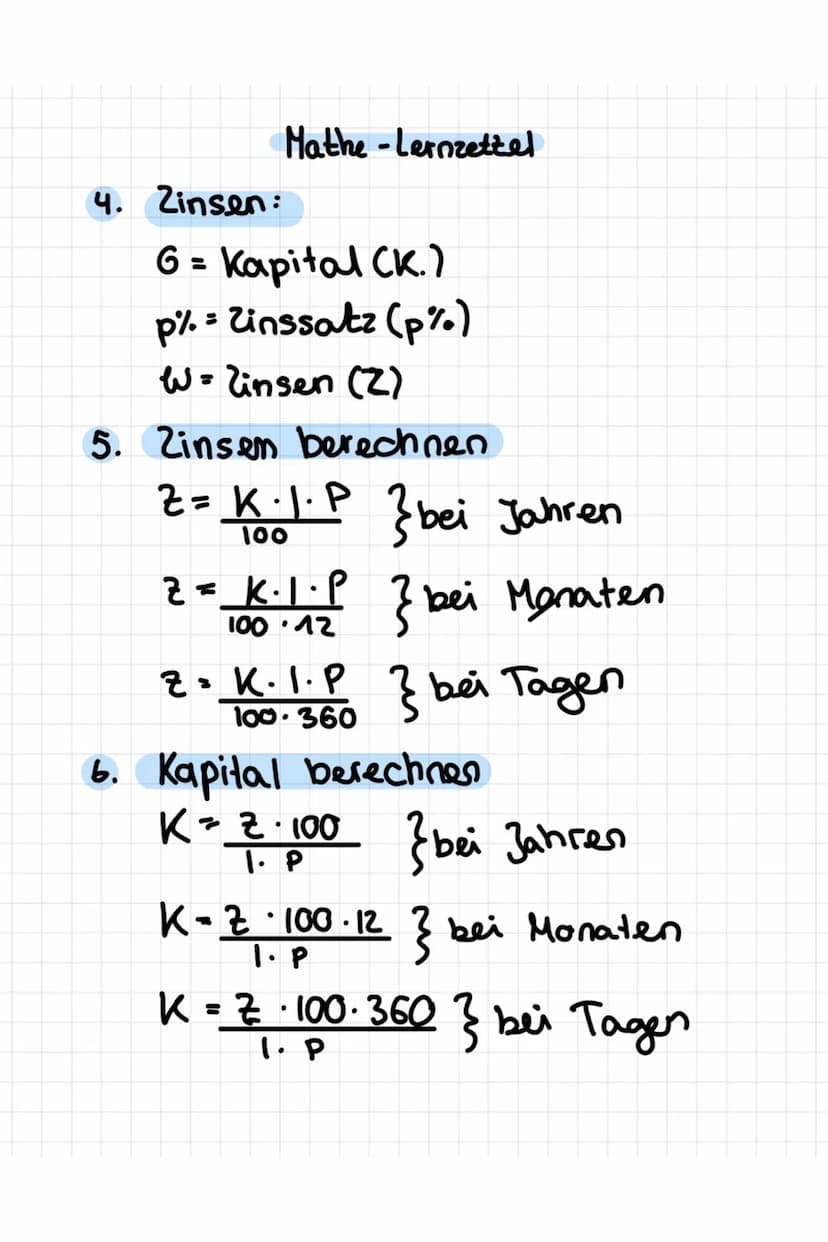 Mathe - Lernzettel
4. Zinsen:
G = Kapital (K.)
p% = Zinssatz (p%)
W = Zinsen (Z)
5. Zinsen berechnen
Z = K · I · P / 100 } bei Jahren
Z = K · I · P / 100 · 12 } bei Monaten
Z = K · I · P / 100 · 360 } bei Tagen
6. Kapital berechnen
K = Z · 100 / I · P } bei Jahren
K = Z · 100 · 12 / I · P } bei Monaten
K = Z · 100 · 360 / I · P } bei Tagen